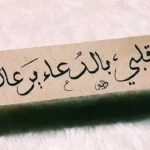 قلبي، بالدُعاء يرعاك